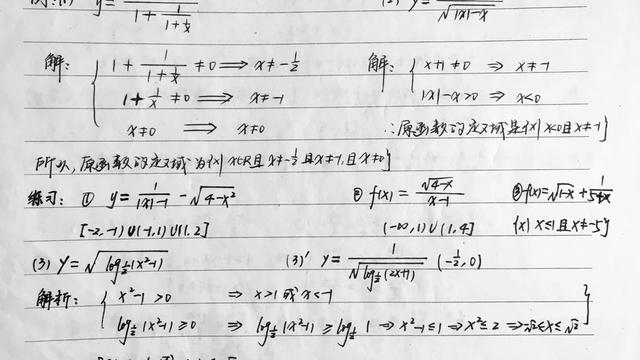 y = 1/(1+1/(1+1/x)) (2) y = /√(|x|-x)
解: { 1+1/(1+1/x) ≠0 ⟹ x≠-1/2 解: { x+1≠0 ⇒ x≠-1
1+1/x ≠0 ⟹ x≠-1 |x|-x>0 ⇒ x<0
x≠0 ⟹ x≠0 ∴原函数的定义域是{x|x<0且x≠-1}
所以,原函数的定义域为{x|x∈R且x≠-1/2且x≠-1,且x≠0}
练习: ① y=1/(|x|-1) - √(4-x²) ② f(x)=√(4-x)/(x-1) ③ f(x)=√(1-x)+1/
[-2,-1)∪(-1,1)∪(1,2] (-∞,1)∪(1,4] {x|x≤1且x≠-5}
(3) y=√(log_{1/2}(x²-1)) (3)' y=1/√(log_{1/2}(2x+1)) (-1/2,0)
解析: { x²-1>0 ⇒ x>1或x<-1
log_{1/2}(x²-1)≥0 ⇒ log_{1/2}(x²-1)≥log_{1/2}1 ⇒ x²-1≤1 ⇒ x²≤2 ⇒ -√2≤x≤√2 }